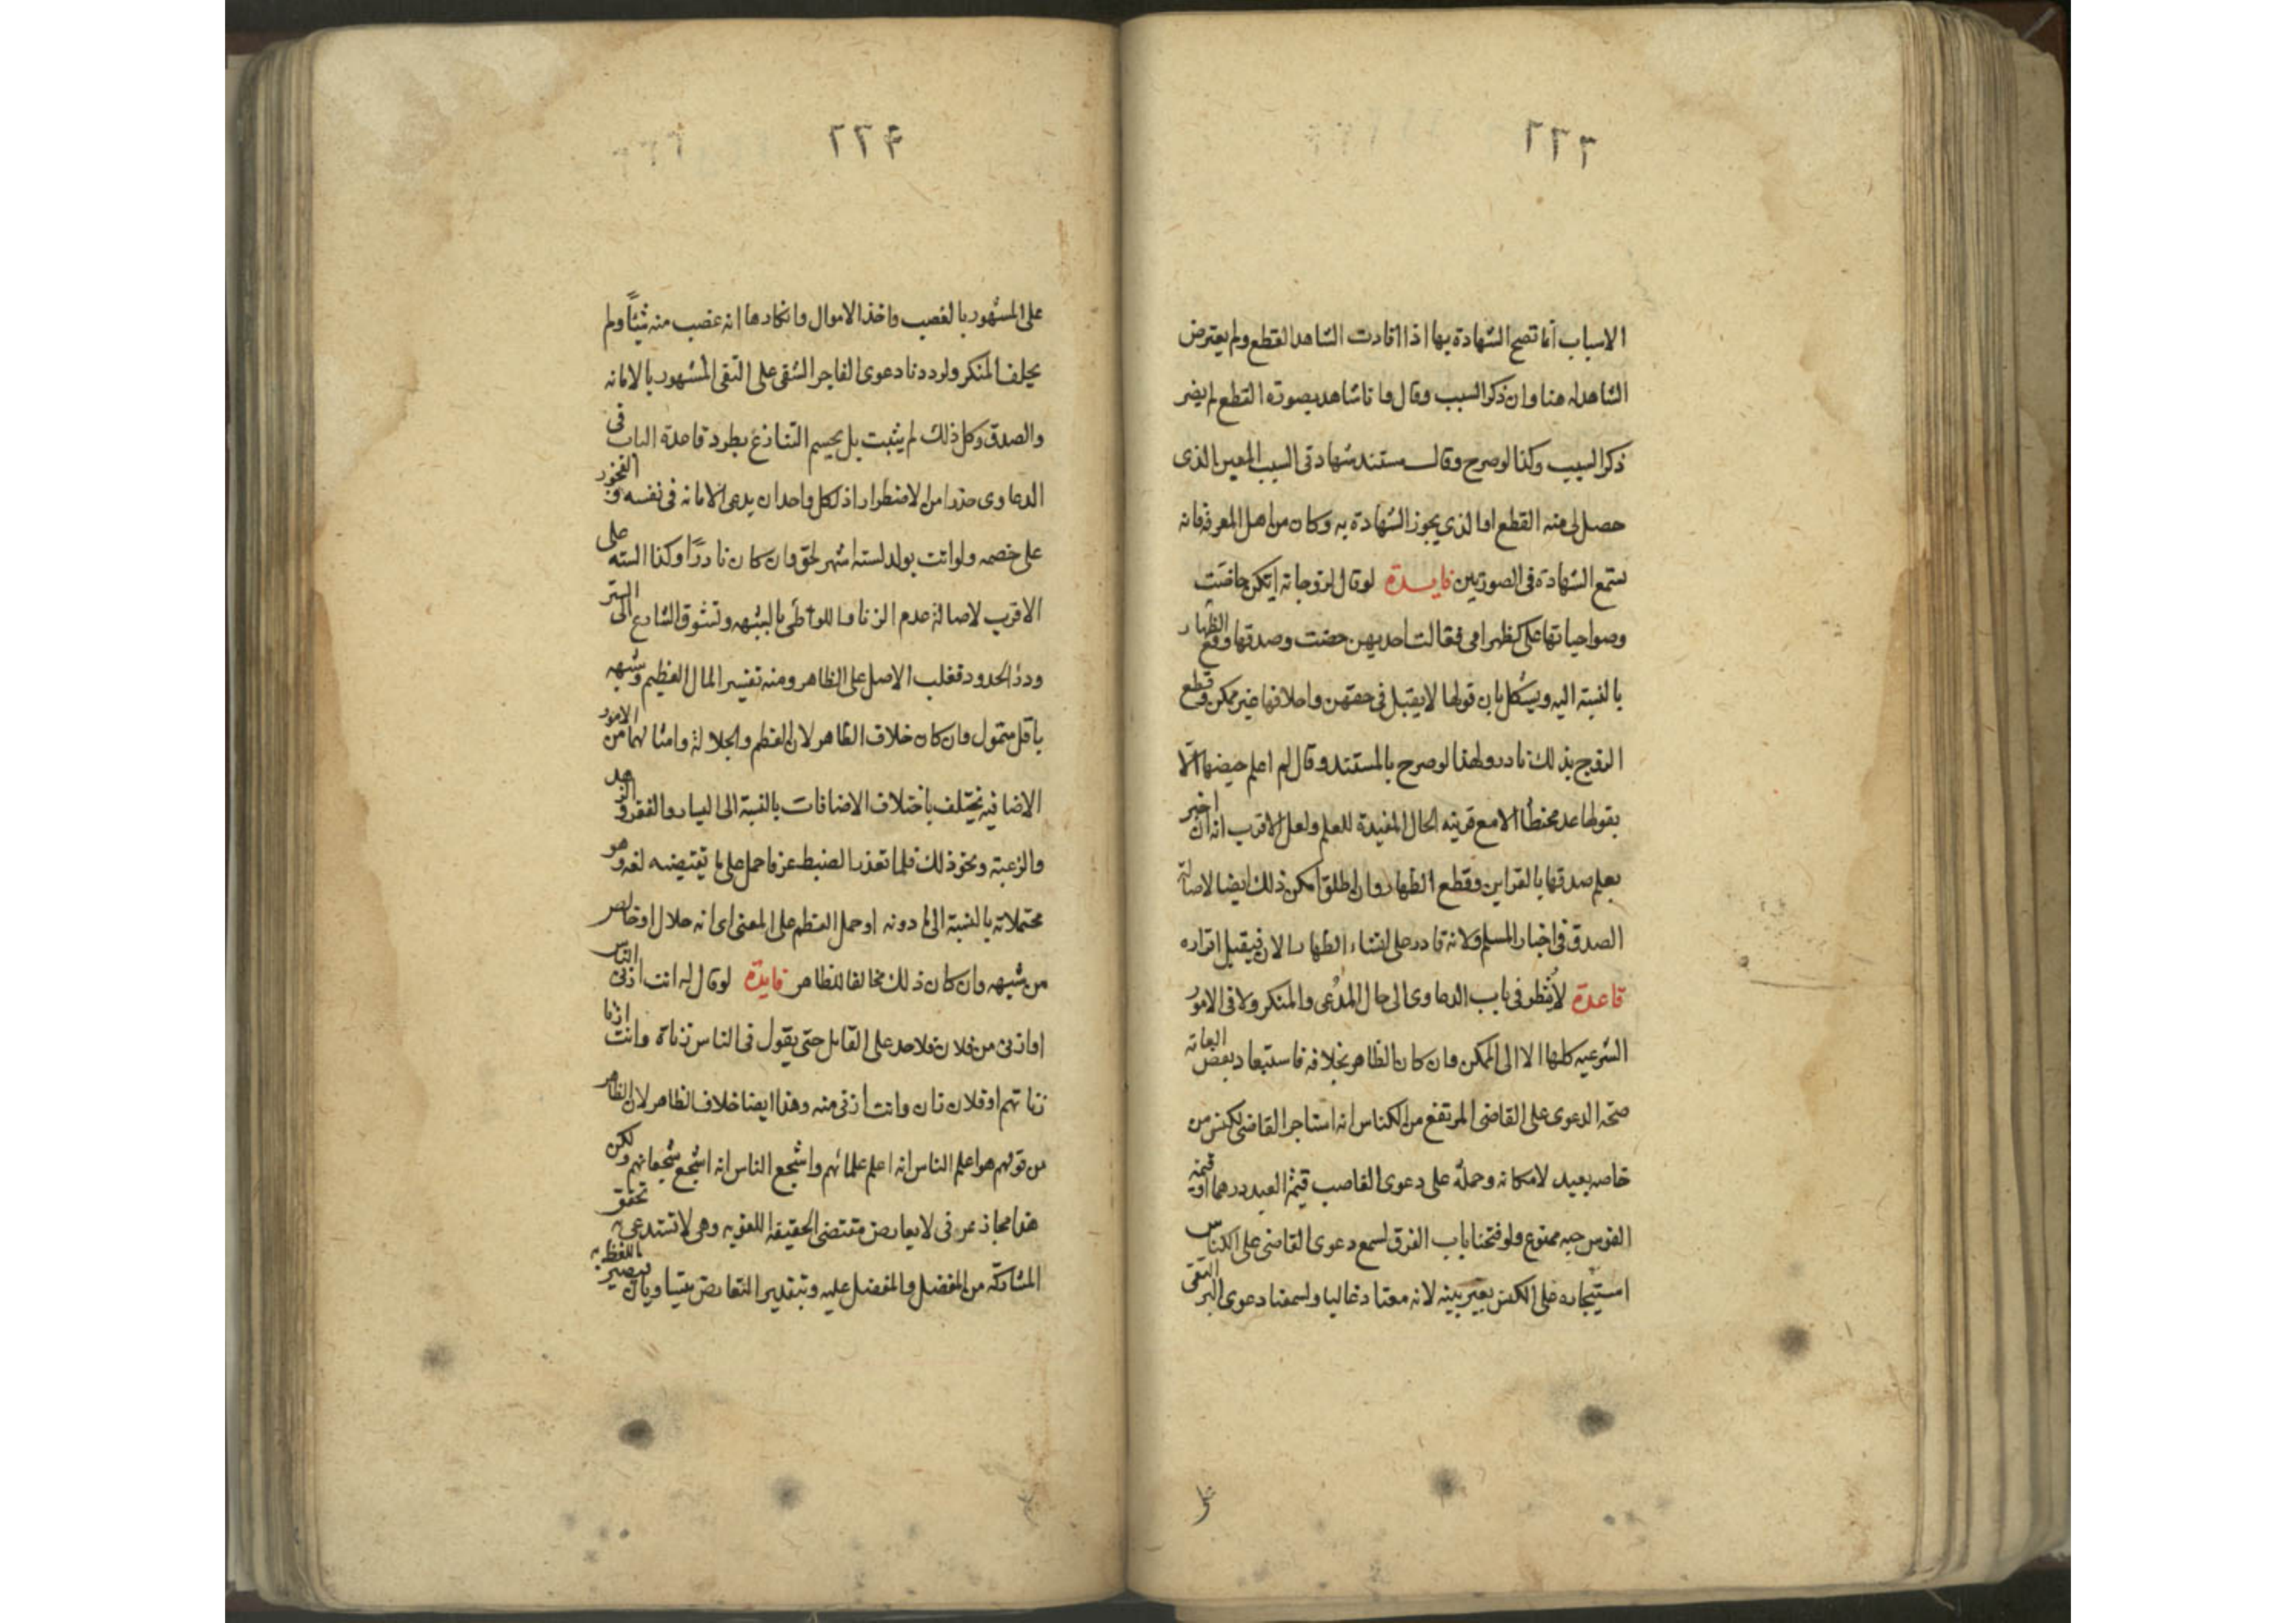 ٢٢٣
الاسباب انما تصح الشهادة بها اذا افادت الشاهد القطع ولم يعترض
الشاهد له هنا وان ذكر السبب وقال وانا شاهد بصورة القطع لم يضر
ذكر السبب وكذا لو صرح وقال مستند شهادتى السبب المعين الذى
حصل لى منه القطع او الذى يجوز الشهادة به وكان من اهل المعرفة فانه
تسمع الشهادة فى الصورتين فايدة لو قال لزوجاته ايتكن حاضت
وصواحباتها على كظهر امى فقالت احديهن حضت وصدقها وقع الظهار
بالنسبة اليه ويشكل بان قولها لا يقبل فى حقهن واحلافها غير ممكن وقطع
الزوج بذلك نادر ولهذا لو صرح بالمستند وقال لم اعلم حيضها الا
بقولها عد مخطئا الا مع قرينه الحال المفيدة للعلم ولعل الاقرب انه ان اخبر
بعلم صدقها بالقراين وقطع الظهار وان اطلق امكن ذلك ايضا لاصالة
الصدق فى اخبار المسلم ولانه قادر على انشاء الظهار الان فيقبل اقراره
قاعدة لا ينظر فى باب الدعاوى الى حال المدعى والمنكر ولا فى الامور
الشرعيه كلها الا الى الممكن وان كان الظاهر بخلافه فاستبعاد بعض العامه
صحه الدعوى على القاضى المرتفع من الكناس انه استاجر القاضى لكنس
خاصه بعيد لامكانه وحمله على دعوى الغاصب قيمة العبد درهما او قيمة
الفرس حبه ممنوع ولو فتحنا باب الفرق لسمع دعوى القاضى على الكناس
استيجاره على الكنس بغير بينه لانه معتاد غالبا ولسمعنا دعوى البر التقى
٢٢٤
على المشهور بالغصب واخذ الاموال وانكارها انه غصب منه شيئا ولم
يحلف المنكر ولرددنا دعوى الفاجر الشقى على التقى المشهور بالامانه
والصدق وكل ذلك لم يثبت بل يحسم التنازع بطرد قاعدة الباب فى
الدعاوى حذرا من الاضطراب اذ لكل واحد ان يدعى الامانه فى نفسه و الفجور
على خصمه ولو اتت بولد لسته اشهر لحق وان كان نادرا وكذا السته على
الاقرب لاصالة عدم الزنا والوطئ بالشبهه وتشوق الشارع الى الستر
ودرء الحدود فغلب الاصل على الظاهر ومنه تفسير المال العظيم وشبهه
باقل متمول وان كان خلاف الظاهر لان العظم والجلالة وامثالهما من الامور
الاضافيه يختلف باختلاف الاضافات بالنسبة الى اليسار والفقر و الزهد
والرغبة ونحو ذلك فلما تعذر الضبط عرفا حمل على ما تقتضيه لغه وهو
محتملاته بالنسبة الى ما دونه او حمل العظم على المعنى اى انه حلال او خالص
من شبهه وان كان ذلك مخالفا للظاهر فايدة لو قال له انت ازنى الناس
او ازنى من فلان فلا حد على القايل حتى يقول فى الناس زناة وانت ازنا
زناتهم او فلان زان وانت ازنى منه وهذا ايضا خلاف الظاهر لان الظاهر
من قولهم هو اعلم الناس انه اعلم علمائهم واشجع الناس انه اشجع شجعانهم ولكن
هذا مجاز عرفى لا يعارض مقتضى الحقيقه اللغويه وهى لا تستدعى تحقق
المشاركة من المفضل والمفضل عليه وبتقدير التعارض يتساويان فيصير اللفظ به